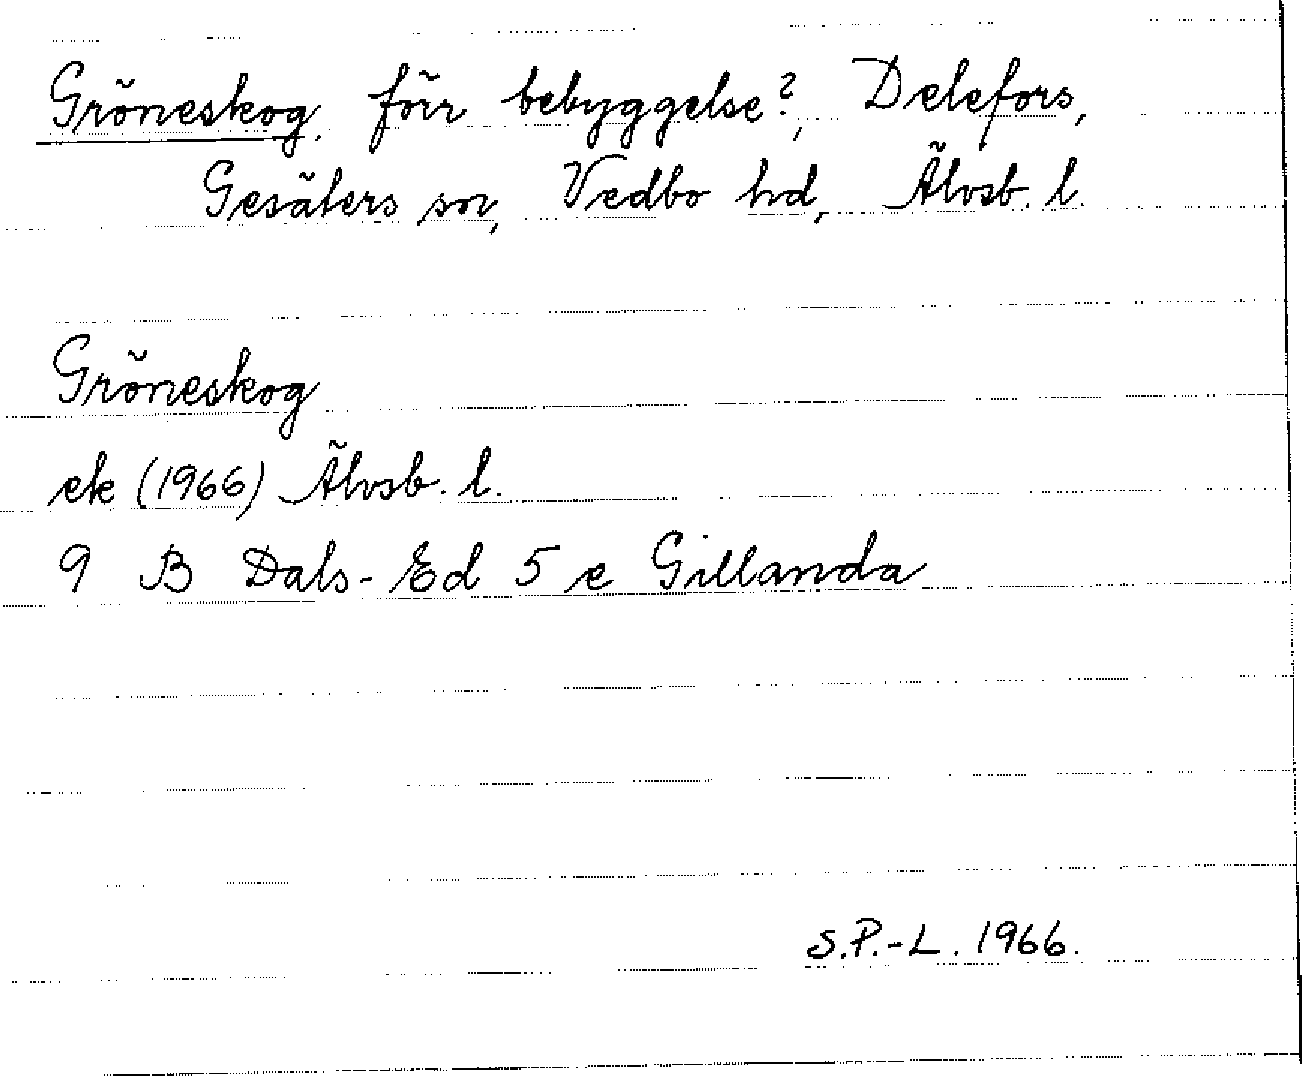 Gröneskog, förr bebyggelse?, Delefors,
Gesäters sn, Vedbo hd, Älvsb. l.
Gröneskog
ek (1966) Älvsb. l.
9 B Dals-Ed 5 e Gillanda
S.P.-L. 1966.